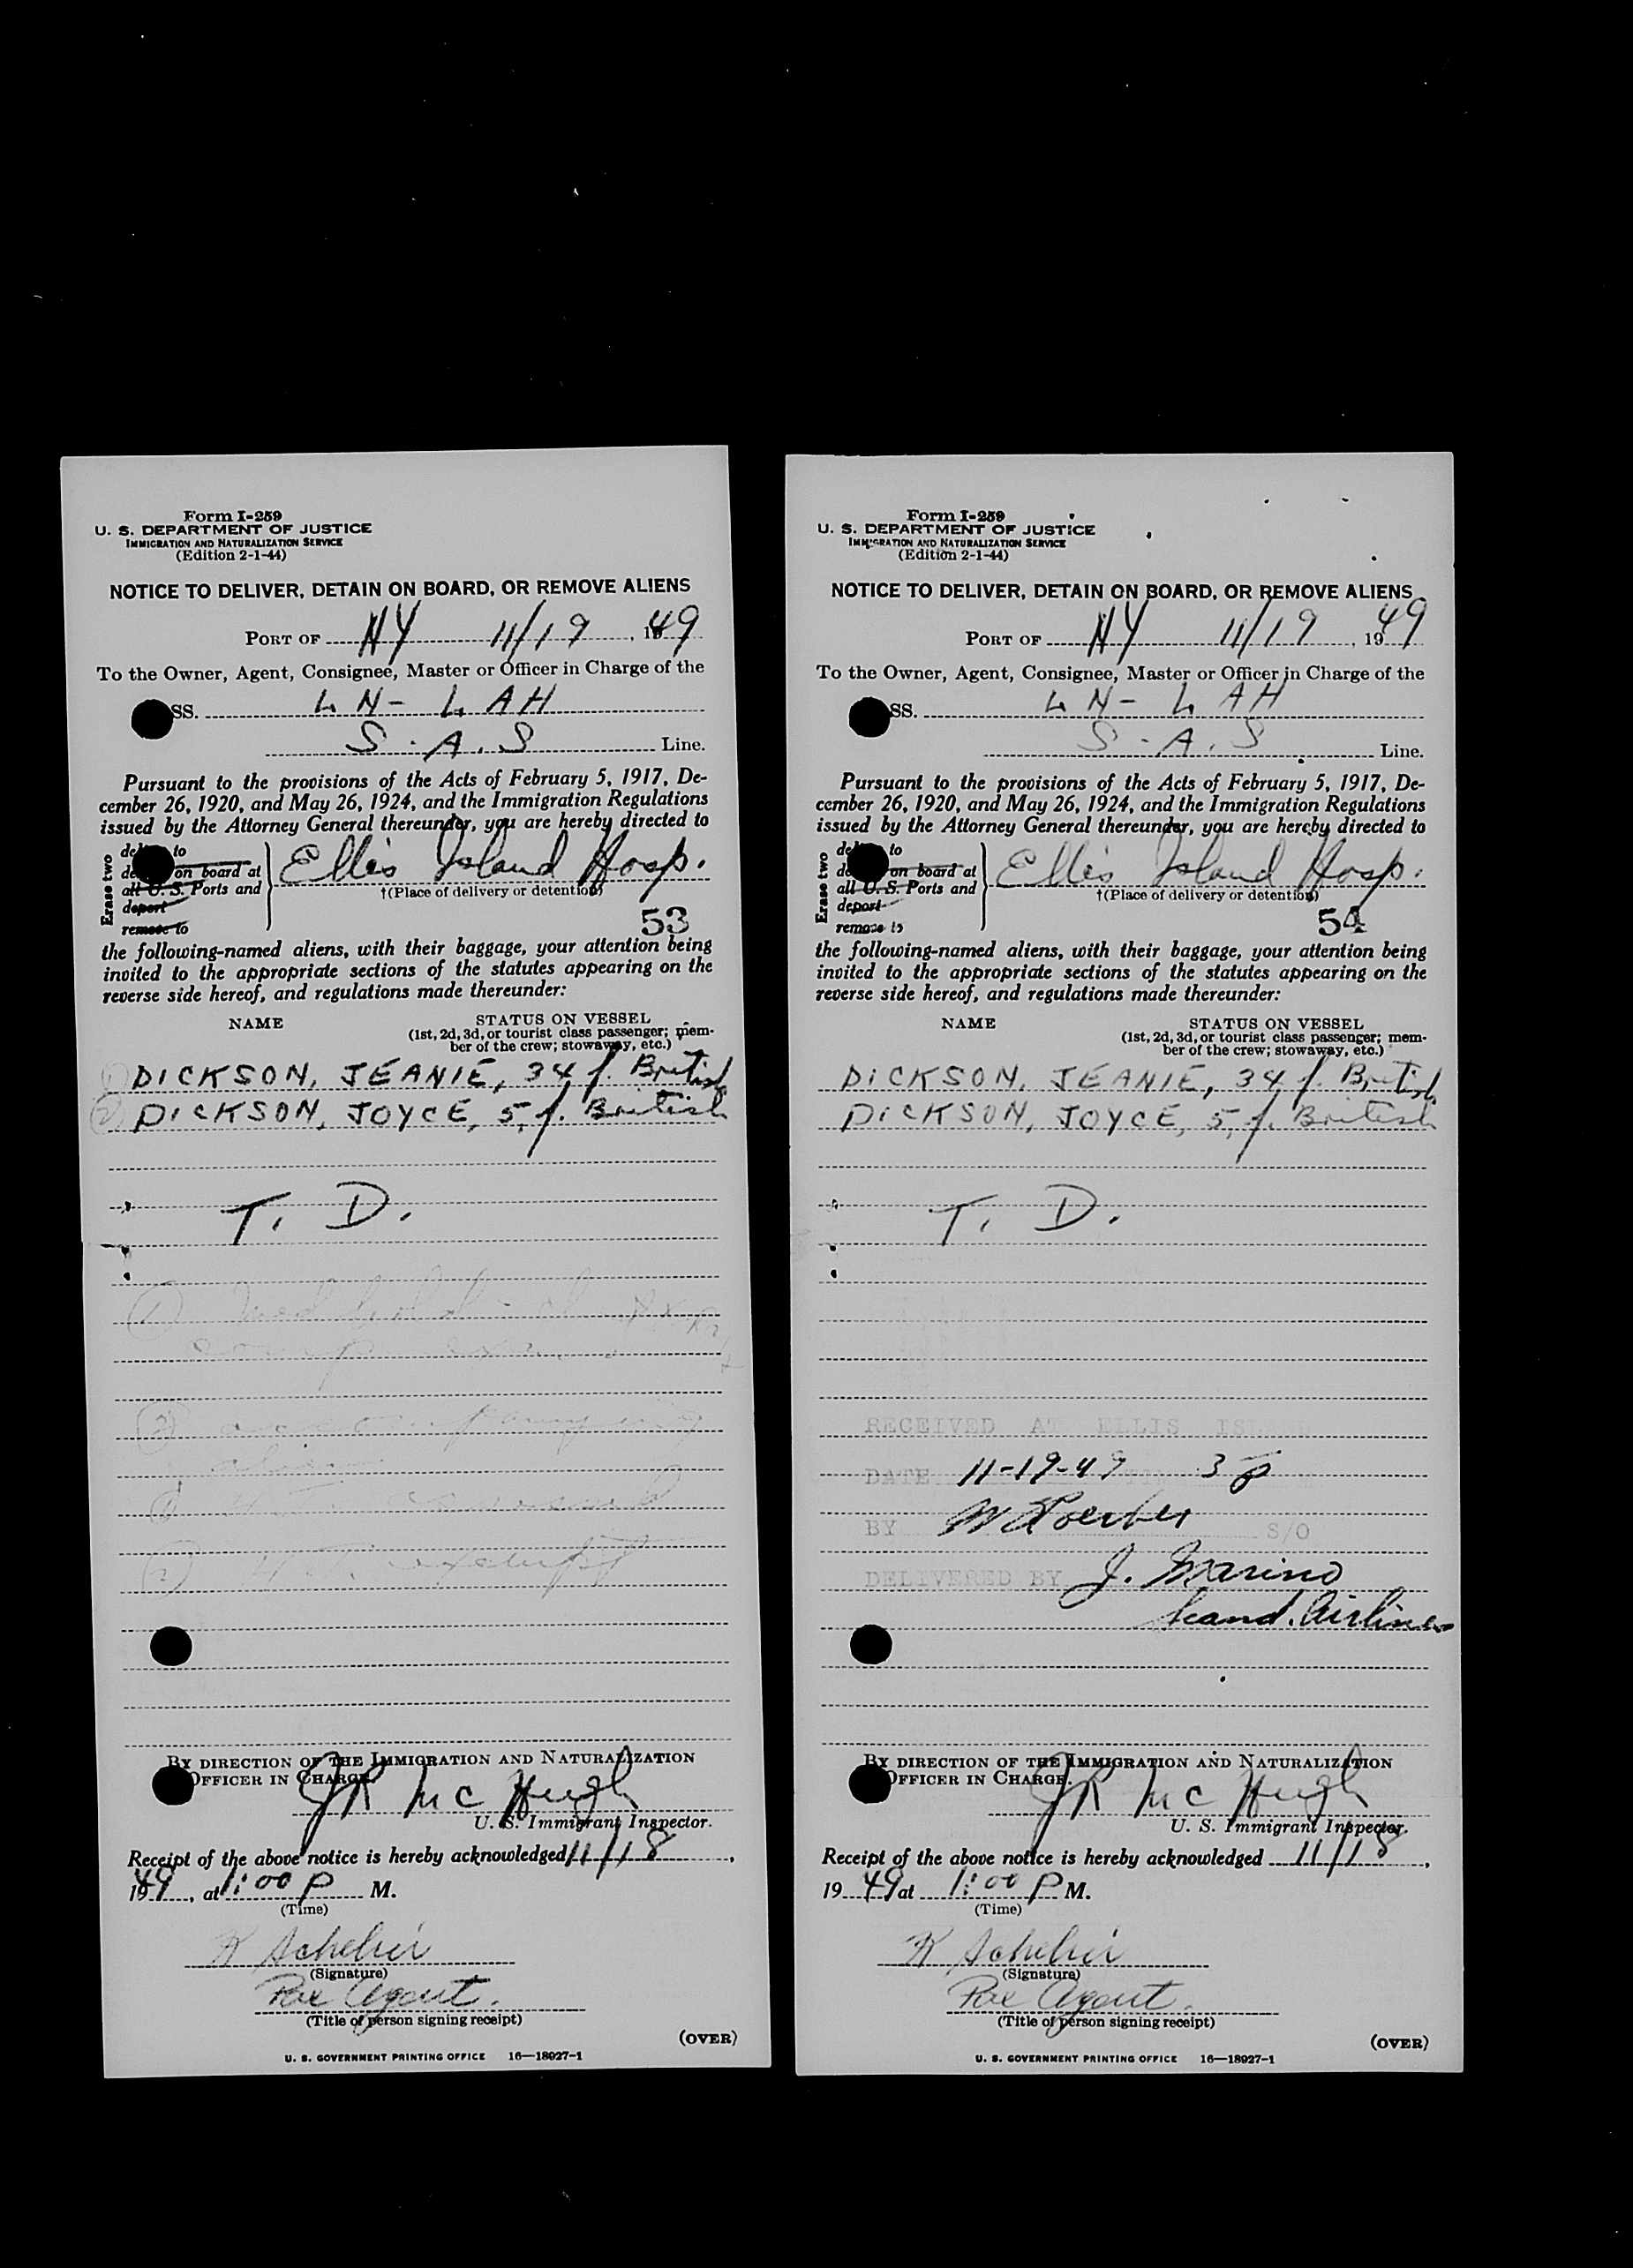 Form I-259
U. S. DEPARTMENT OF JUSTICE
IMMIGRATION AND NATURALIZATION SERVICE
(Edition 2-1-44)
NOTICE TO DELIVER, DETAIN ON BOARD, OR REMOVE ALIENS
PORT OF NY 11/19, 1949
To the Owner, Agent, Consignee, Master or Officer in Charge of the
SS. LN-LAH
S.A.S Line.
Pursuant to the provisions of the Acts of February 5, 1917, De-
cember 26, 1920, and May 26, 1924, and the Immigration Regulations
issued by the Attorney General thereunder, you are hereby directed to
Erase two
to
on board at
all U. S. Ports and
deport
remove to
Ellis Island Hosp.
†(Place of delivery or detention)
53
the following-named aliens, with their baggage, your attention being
invited to the appropriate sections of the statutes appearing on the
reverse side hereof, and regulations made thereunder:
NAME STATUS ON VESSEL
(1st, 2d, 3d, or tourist class passenger; mem-
ber of the crew; stowaway, etc.)
(1) DICKSON, JEANIE, 34, f. British
(2) DICKSON, JOYCE, 5, f. British
T. D.
(1)
(2) accompanying
alien
(1)
(2)
BY DIRECTION OF THE IMMIGRATION AND NATURALIZATION
OFFICER IN CHARGE.
JR McHugh
U. S. Immigrant Inspector.
Receipt of the above notice is hereby acknowledged 11/18,
1949, at 1:00 P M.
(Time)
K
(Signature)
Agent.
(Title of person signing receipt)
(OVER)
U. S. GOVERNMENT PRINTING OFFICE 16—18027-1
Form I-259
U. S. DEPARTMENT OF JUSTICE
IMMIGRATION AND NATURALIZATION SERVICE
(Edition 2-1-44)
NOTICE TO DELIVER, DETAIN ON BOARD, OR REMOVE ALIENS
PORT OF NY 11/19, 1949
To the Owner, Agent, Consignee, Master or Officer in Charge of the
SS. LN-LAH
S.A.S Line.
Pursuant to the provisions of the Acts of February 5, 1917, De-
cember 26, 1920, and May 26, 1924, and the Immigration Regulations
issued by the Attorney General thereunder, you are hereby directed to
Erase two
to
on board at
all U. S. Ports and
deport
remove to
Ellis Island Hosp.
†(Place of delivery or detention)
54
the following-named aliens, with their baggage, your attention being
invited to the appropriate sections of the statutes appearing on the
reverse side hereof, and regulations made thereunder:
NAME STATUS ON VESSEL
(1st, 2d, 3d, or tourist class passenger; mem-
ber of the crew; stowaway, etc.)
DICKSON, JEANIE, 34, f. British
DICKSON, JOYCE, 5, f. British
T. D.
RECEIVED AT ELLIS ISLAND
DATE 11-19-49 3 P
BY S/O
DELIVERED BY J. Marino
Scand. Airlines
BY DIRECTION OF THE IMMIGRATION AND NATURALIZATION
OFFICER IN CHARGE.
JR McHugh
U. S. Immigrant Inspector.
Receipt of the above notice is hereby acknowledged 11/18,
1949 at 1:00 P M.
(Time)
K
(Signature)
Agent.
(Title of person signing receipt)
(OVER)
U. S. GOVERNMENT PRINTING OFFICE 16—18027-1